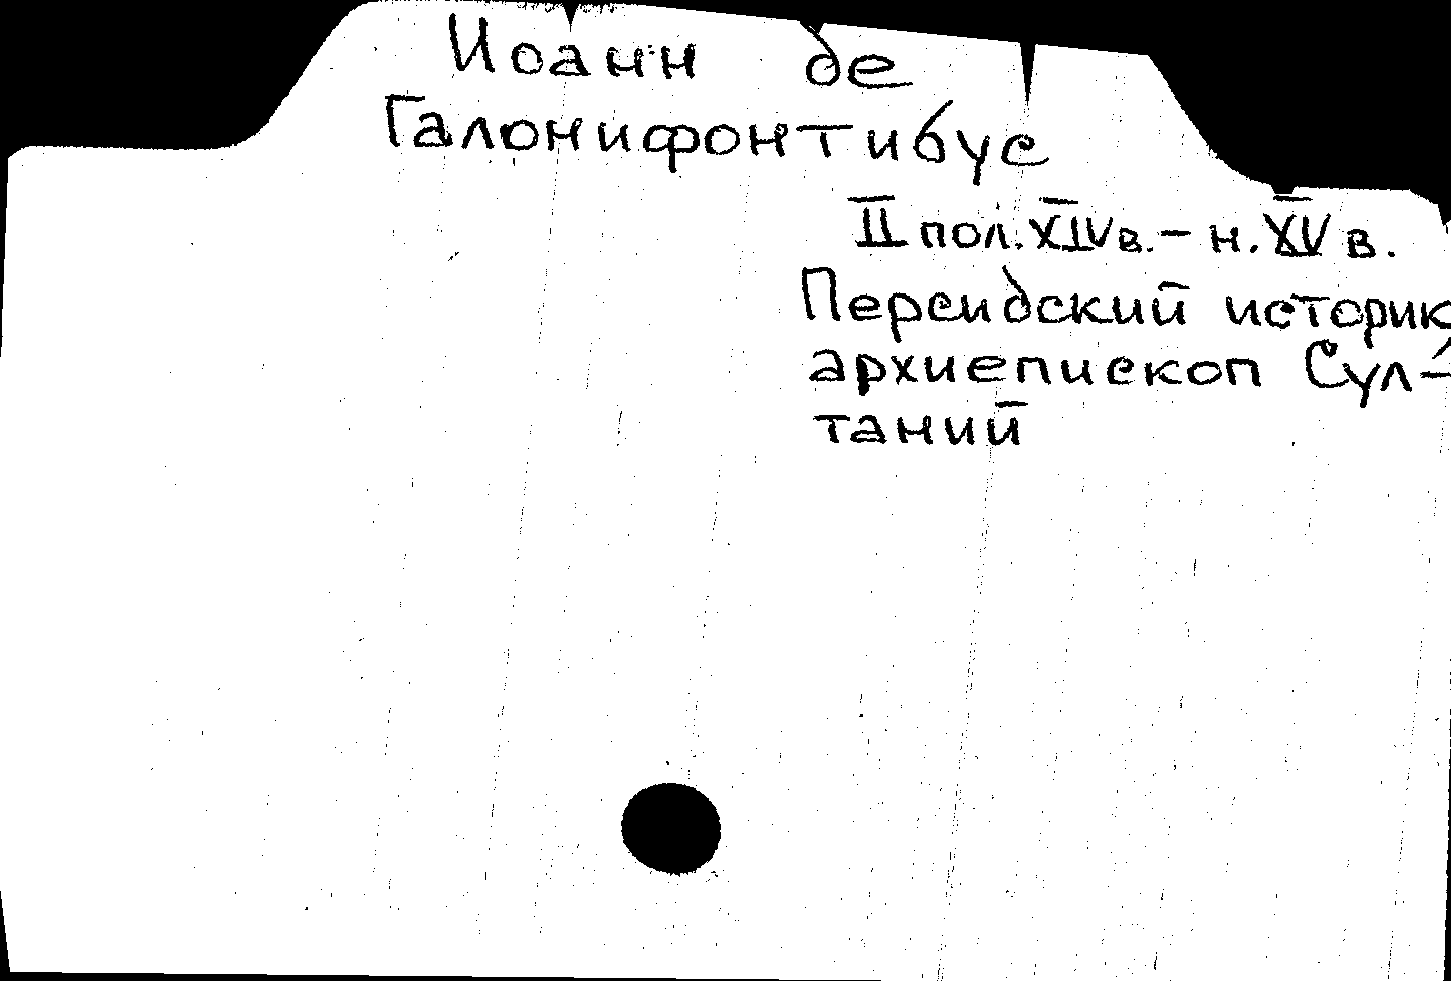 Иоанн де
Галонифонтибус
II пол. XIV в. - н. XV в.
Персидский историк
архиепископ Сул-
таний